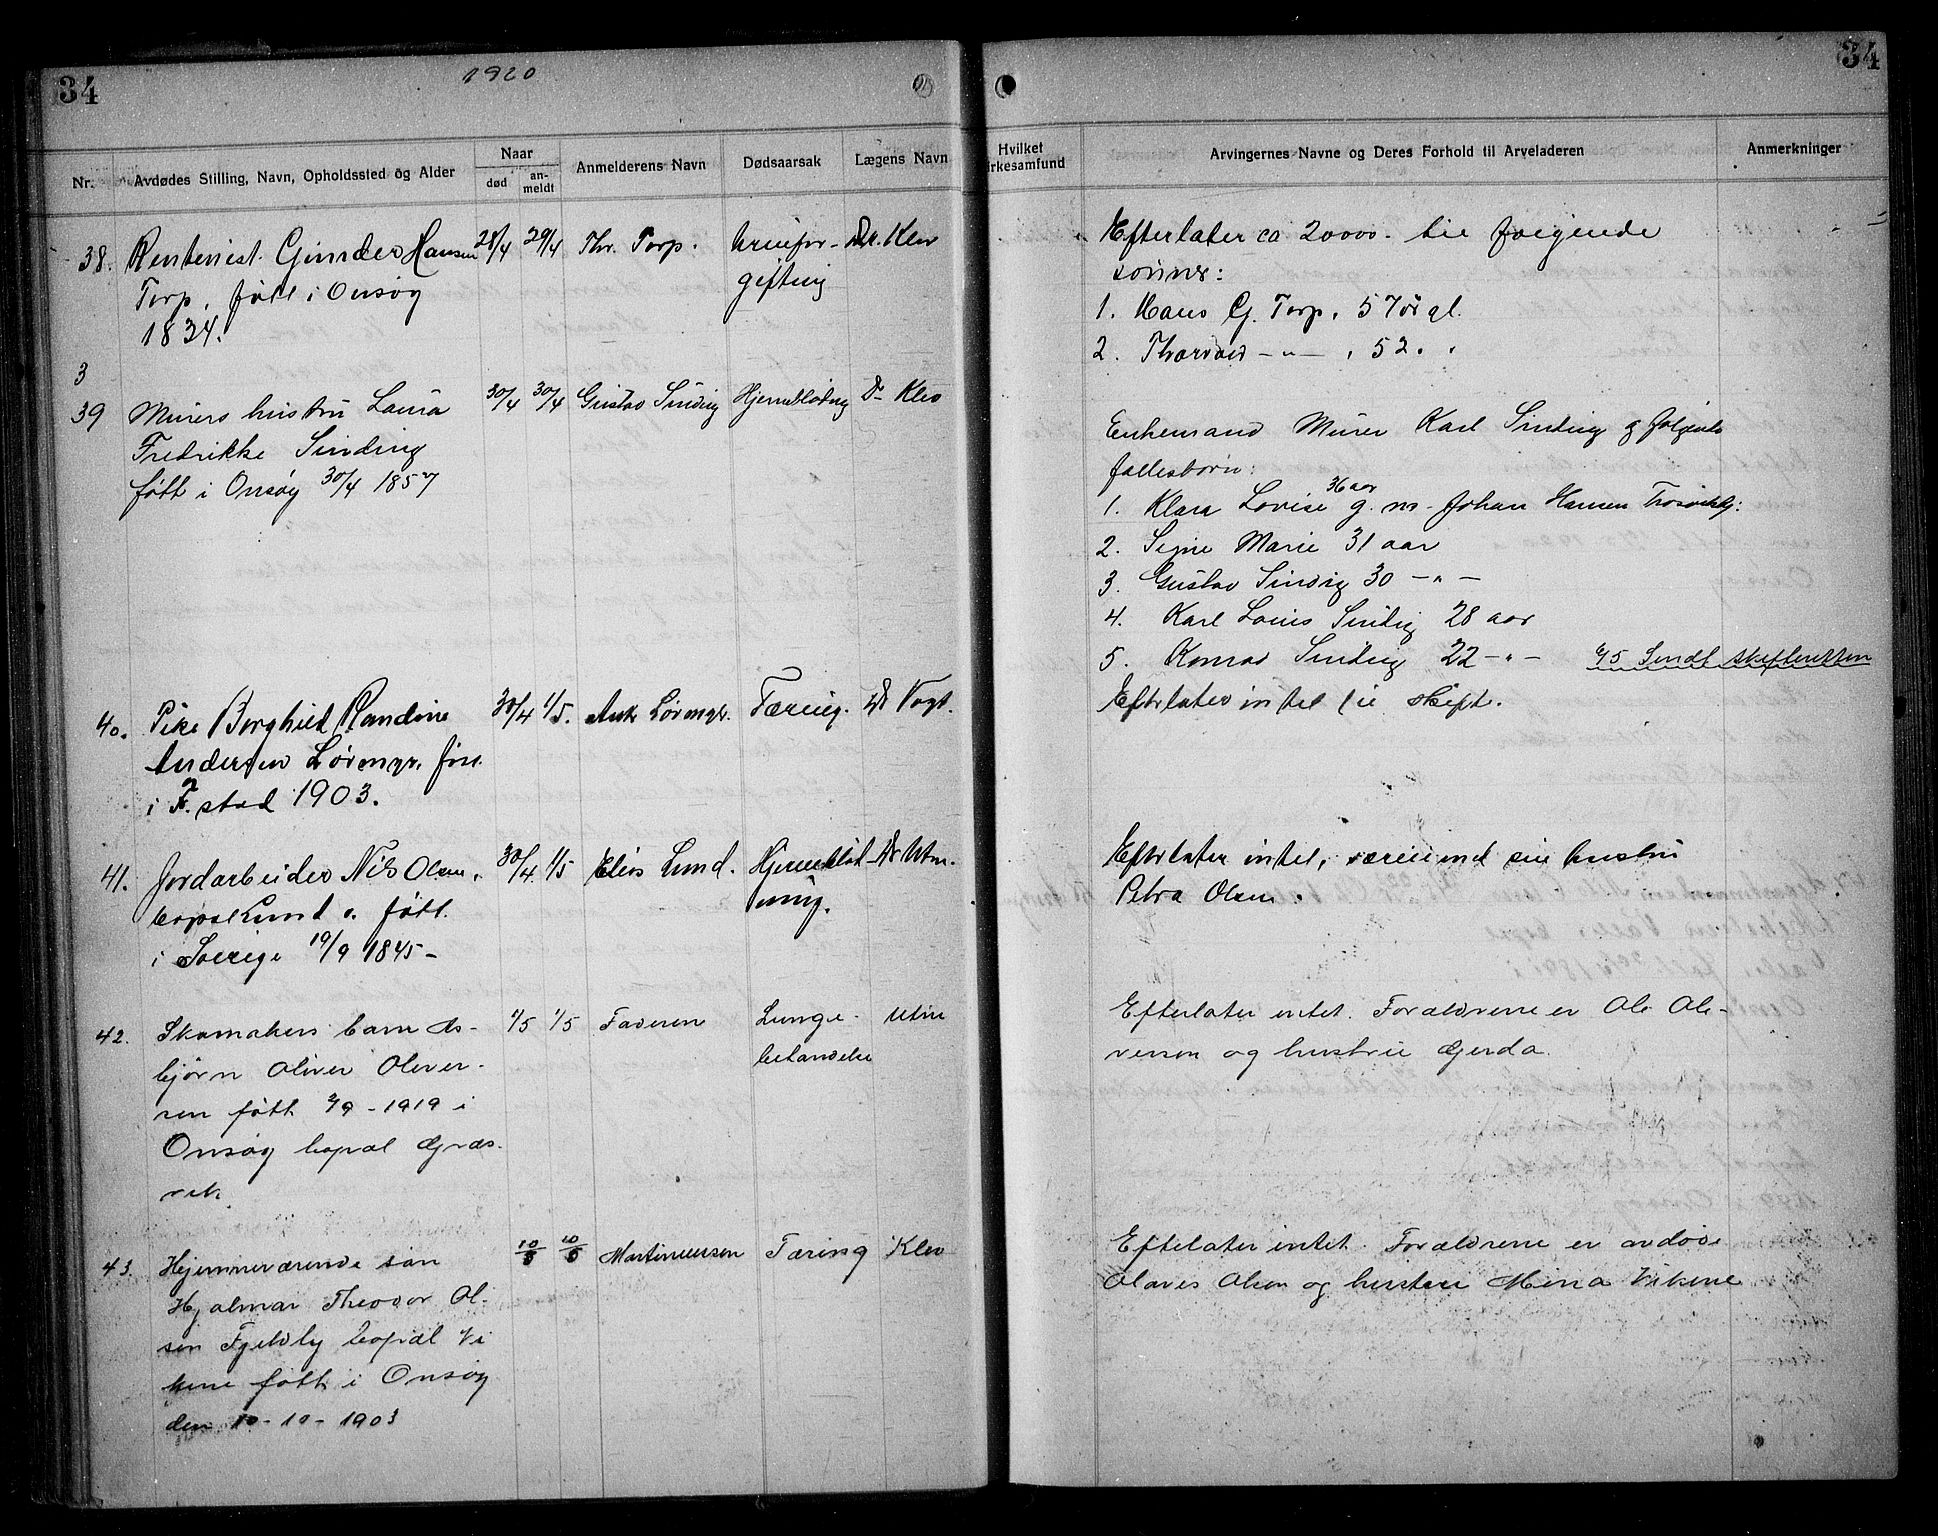 34
1920
34
Nr.
Avdødes Stilling, Navn, Opholdssted og Alder
Naar
død
an-
meldt
Anmelderens Navn
Dødsaarsak
Lægens Navn
Hvilket
irkesamfund
Arvingernes Navne og Deres Forhold til Arveladeren
Anmerkninger
38. Rentenist. Gunder Hansen 28/4 29/4 Thr. Torp. Urinfor-
Torp. født i Onsøy giftnig Dr. Klev
1834.
Efterlater ca 20000.- til følgende
sønner:
1. Hans G. Torp. 57 år gl.
2. Thorvald -"- , 52. "
3
39 Murers hustru Laura 30/4 30/4 Gustav Sinding Hjerneblødng Dr Klev
Fredrikke Sinding
født i Onsøy 30/4 1857
Enkemand Murer Karl Sinding og følgende
fællesbørn:
36 aar
1. Klara Lovise g. m. Johan Hansen
2. Signe Marie 31 aar
3. Gustav Sinding 30 -"-
4. Karl Louis Sinding 28 aar
5. Konrad Sinding 22 -"- Sendt skifteretten
40. Pike Borghild Randine 30/4 1/5. Løvengr. Tæring. Dr Vogt.
Andersen Løvengr. født
i F.stad 1903.
Efterlater intet til skift.
41. Jordarbeider Nils Olsen, 30/4 1/5 Elias Lund. Hjerneblød-
bopæl Lund. født ning.
i Sverige 19/9 1845-
Efterlater intet, værende sin hustru
Petra Olsen.
42. Skomakers barn As- 1/5 1/5 Faderen Lunge-
bjørn Oliver Oliver- betændelse
sen født 2/9 - 1919 i
Onsøy bopæl Græs-
vik
Efterlater intet. Forældrene er Ole Oli-
versen og hustru Gerda.
43. Hjemmeværende søn 10/5 10/5 Martineusen Tæring Klev
Hjalmar Theodor Ol-
sen Fjeldly bopæl Vi
kene født i Onsøy
den 10-10-1903
Efterlater intet. Forældrene er avdøde
Olaves Olsen og hustru Mina Vikene